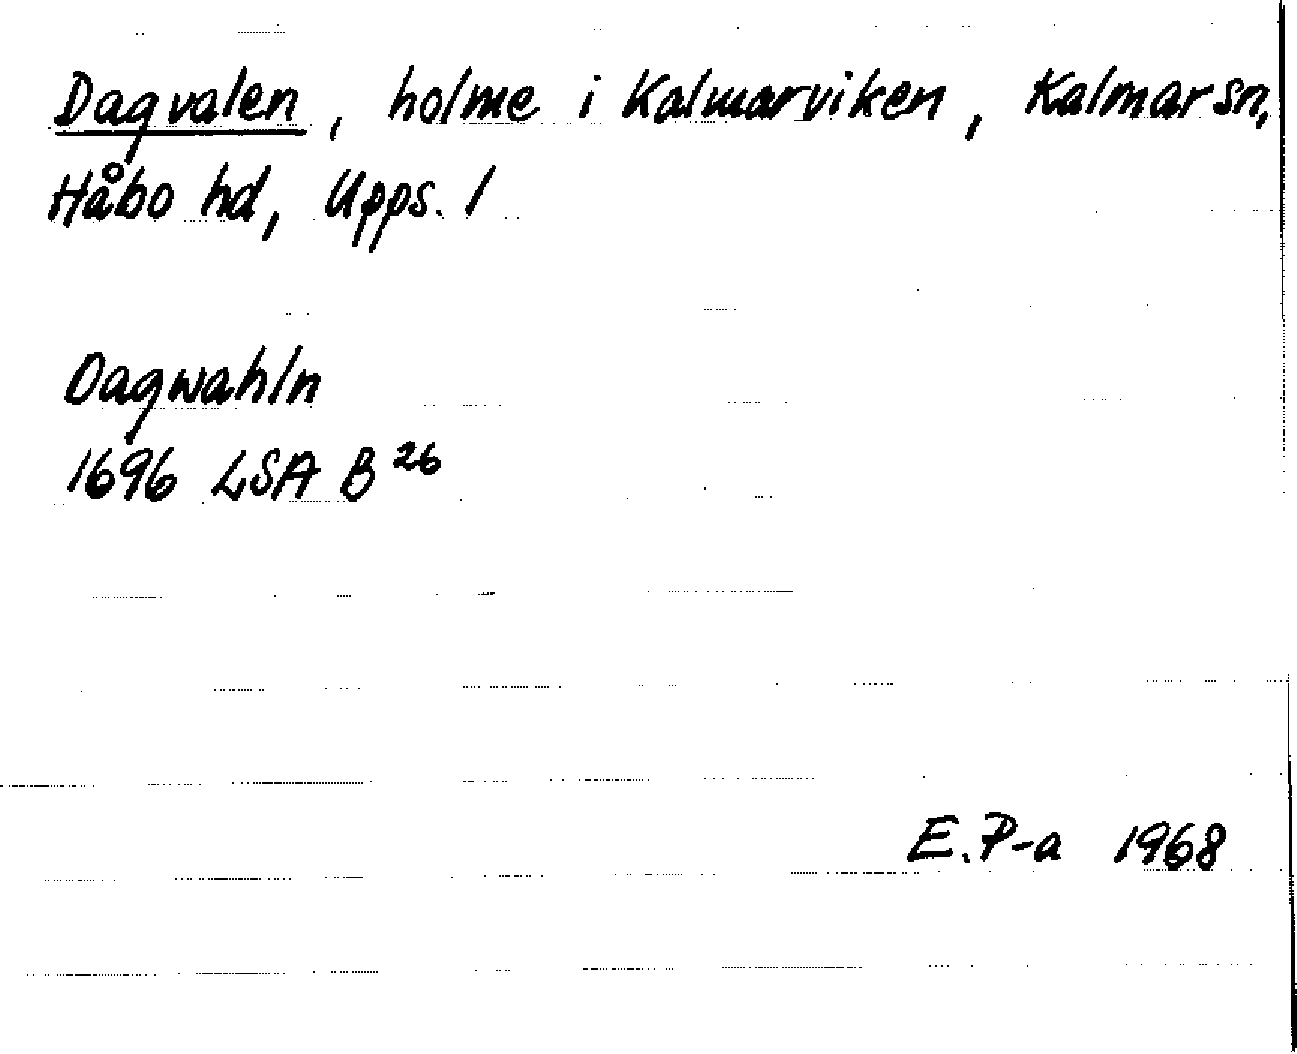 Dagvalen, holme i Kalmarviken, Kalmar sn,
Håbo hd, Upps. l
Dagwahln
1696 LSA B 26
E. P-a 1968